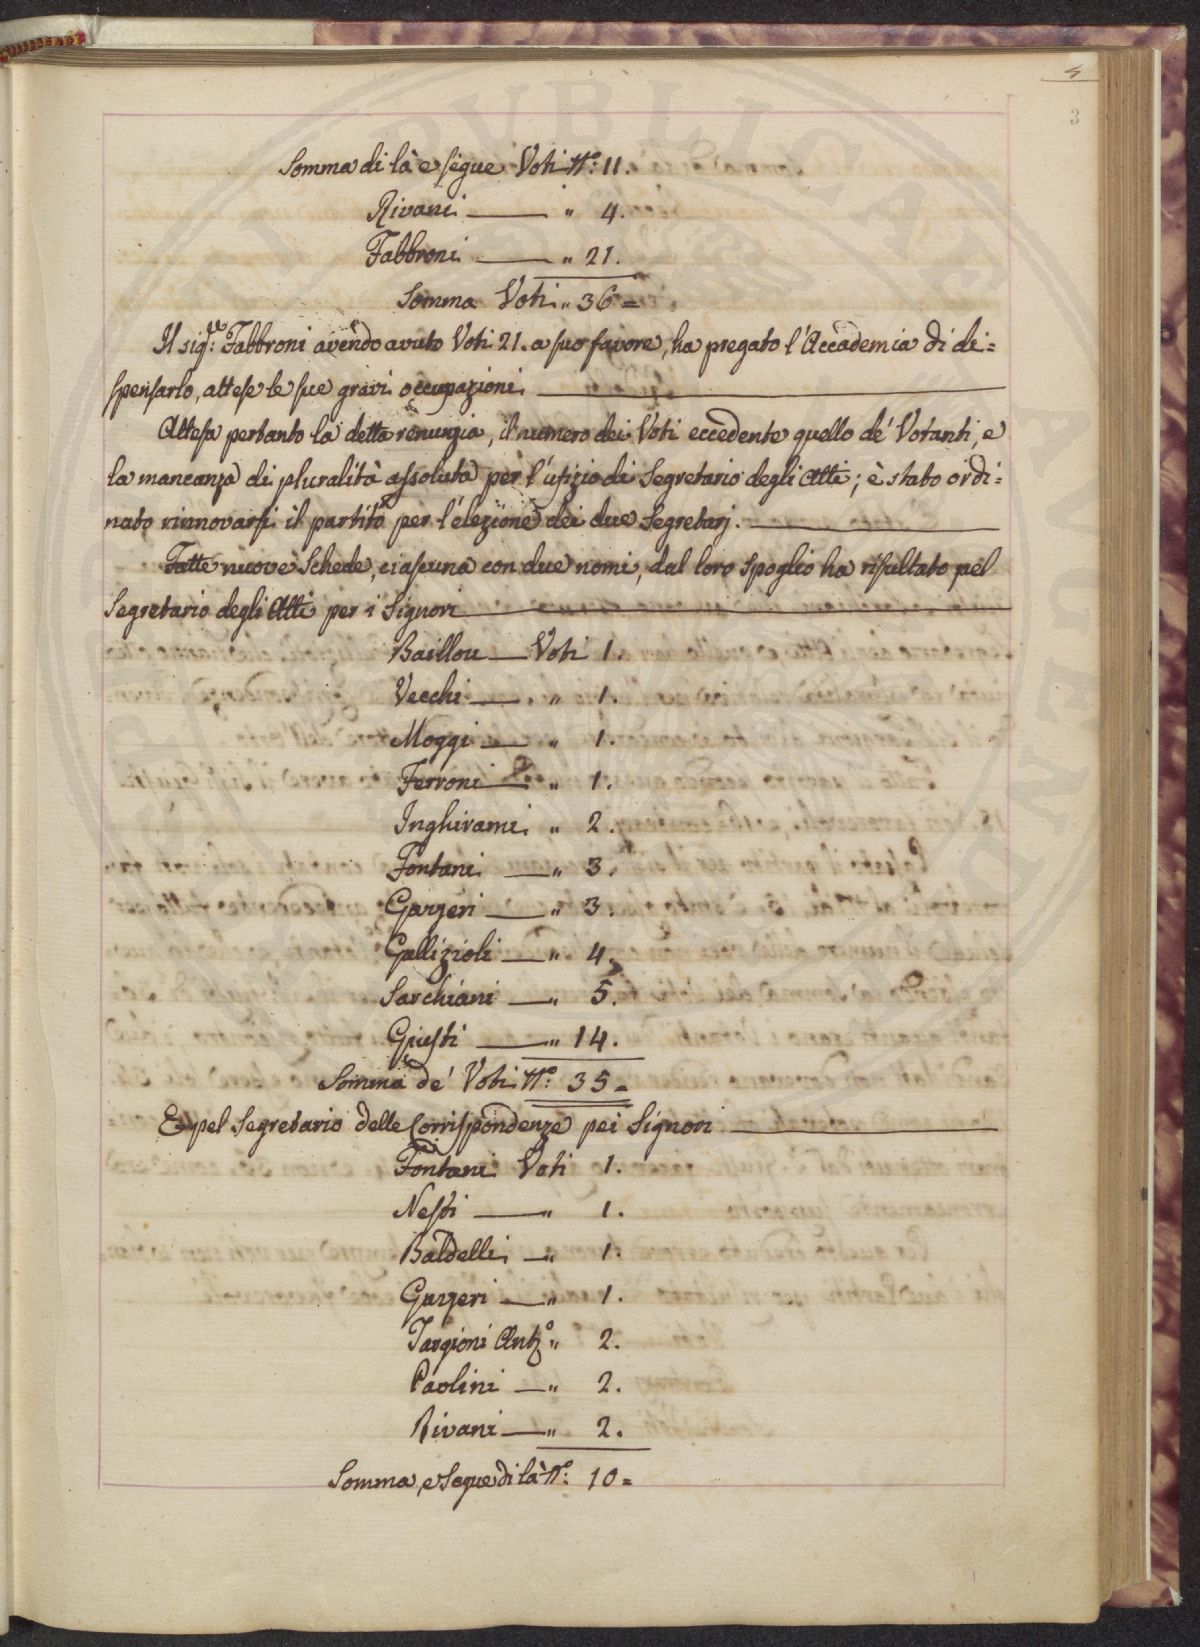 5
3
Somma di là e segue Voti N.º: 11.
Rivani — " 4.
Fabbroni — " 21.
Somma Voti " 36 =
Il sig.r Fabbroni avendo avuto Voti 21. a suo favore, ha pregato l'Accademia di di=
spensarlo, attese le sue gravi occupazioni.
Attesa pertanto la detta renunzia, il numero dei Voti eccedente quello de' Votanti, e
la mancanza di pluralità assoluta per l'ufizio di Segretario degli Atti; è stato ordi=
nato rinnovarsi il partito per l'elezione dei due Segretarj.
Fatte nuove Schede, ciascuna con due nomi, dal loro spoglio ha risultato pel
Segretario degli Atti per i Signori
Baillou — Voti 1.
Vecchi — " 1.
Moggi — " 1.
Ferroni — " 1.
Inghirami " 2.
Fontani — " 3.
Gazzeri — " 3.
Gallizioli — " 4.
Sarchiani — " 5.
Giusti — " 14.
Somma de' Voti N.º: 35 =
E pel Segretario delle Corrispondenze pei Signori
Fontani Voti 1.
Nesti — " 1.
Baldelli — " 1.
Gazzeri — " 1.
Targioni Ant.º " 2.
Paolini — " 2.
Rivani — " 2.
Somma, e Segue di là N.º: 10 =